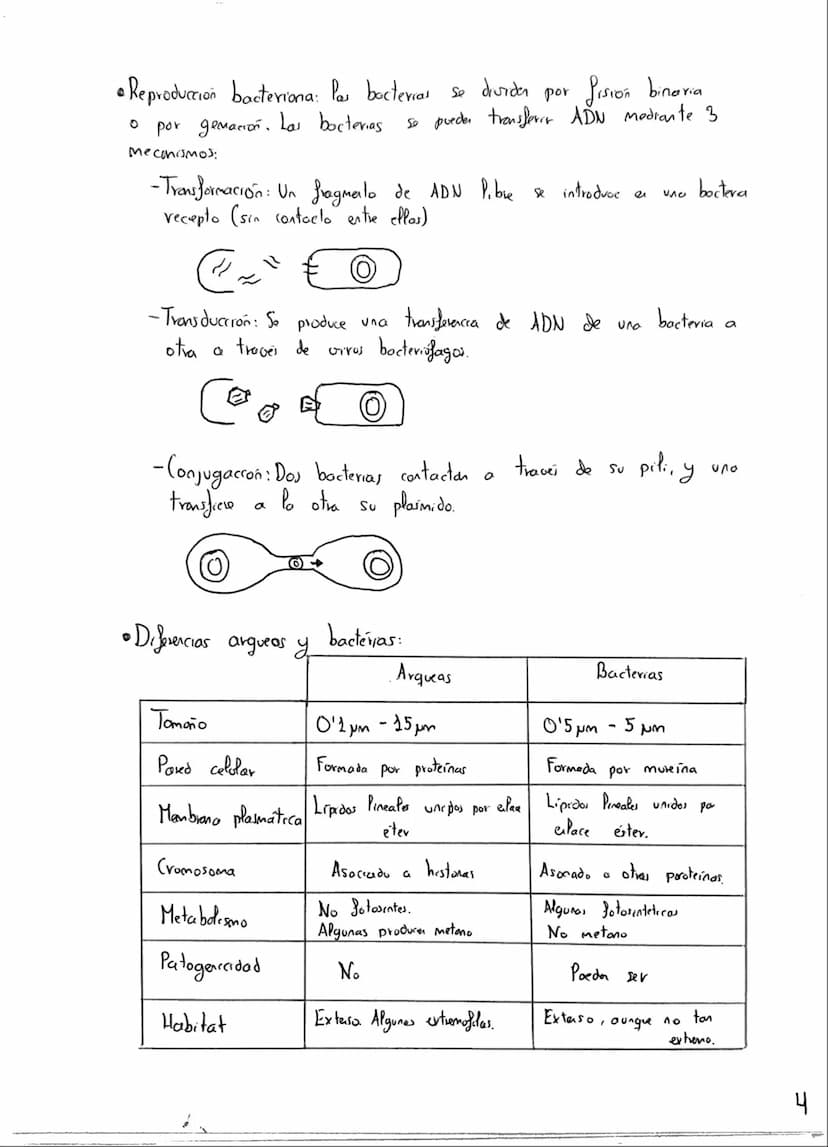 • Reproducción bacteriana: Las bacterias se dividen por fisión binaria
o por gemación. Las bacterias se pueden transferir ADN mediante 3
mecanismos:
- Transformación: Un fragmento de ADN libre se introduce en una bacteria
recepto (sin contacto entre ellas)
- Transducción: Se produce una transferencia de ADN de una bacteria a
otra a través de virus bacteriófagos.
- Conjugación: Dos bacterias contactan a través de su pili, y una
transfiere a la otra su plásmido.
• Diferencias arqueas y bacterias:
Arqueas Bacterias
Tamaño 0'1 µm - 15 µm 0'5 µm - 5 µm
Pared celular Formada por proteínas Formada por mureína
Membrana plasmática Lípidos lineales unidos por enlace éter Lípidos lineales unidos por enlace éster.
Cromosoma Asociado a histonas Asociado a otras proteínas.
Metabolismo No fotosíntes. Algunas producen metano Algunas fotosintéticas No metano
Patogenicidad No Pueden ser
Habitat Extenso. Algunas extremófilas. Extenso, aunque no tan extremo.
4